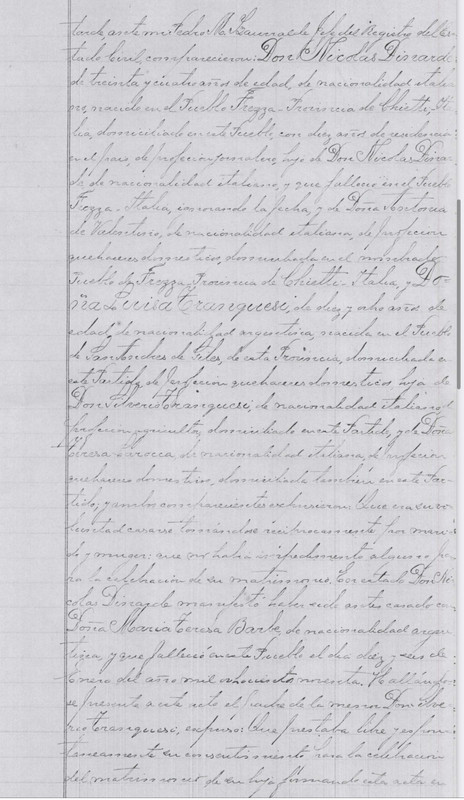 tarde, ante mi Pedro M. Jefe del Registro del Es-
tado Civil, comparecieron: Don Nicolás Discardi
de treinta y cuatro años de edad, de nacionalidad italia-
no, nacido en el Pueblo Frezza - Provincia de Chietti, Ita-
lia, domiciliado en este Pueblo, con diez años de residencia
en el pais, de profesion jornalero, hijo de Don Nicolás Discar-
di, de nacionalidad italiano, y que falleció en el Pueblo
Frezza - Italia, ignorando la fecha, y de Doña Antonia
de Valentinis, de nacionalidad italiana, de profesion
quehaceres domesticos, domiciliada en el
Pueblo de Frezza Provincia de Chietti - Italia, y Do-
ña Luisa Tranquesi, de diez y ocho años de
edad, de nacionalidad argentina, nacida en el Pueblo
de San Andres de Giles, de esta Provincia, domiciliada en
este Partido, de profesion quehaceres domesticos, hija de
Don Silverio Tranquesi, de nacionalidad italiano, de
profesion agricultor, domiciliado en este Partido, y de Doña
Teresa de nacionalidad italiana, de profesion
quehaceres domesticos, domiciliada tambien en este Par-
tido; y ambos comparecientes expusieron: Que era su vo-
luntad casarse tomándose reciprocamente por mari-
do y mujer: que no habia impedimento alguno pa-
ra la celebracion de su matrimonio. El citado Don Ni-
colás Discardi manifestó haber sido antes casado con
Doña Maria Teresa de nacionalidad argen-
tina, y que falleció en este Pueblo el dia diez y seis de
Enero del año mil ochocientos noventa. Hallándo-
se presente á este acto el padre de la menor Don Silve-
rio Tranquesi, expuso: Que prestaba libre y espon-
táneamente su consentimiento para la celebracion
del matrimonio de su hija firmando esta acta en